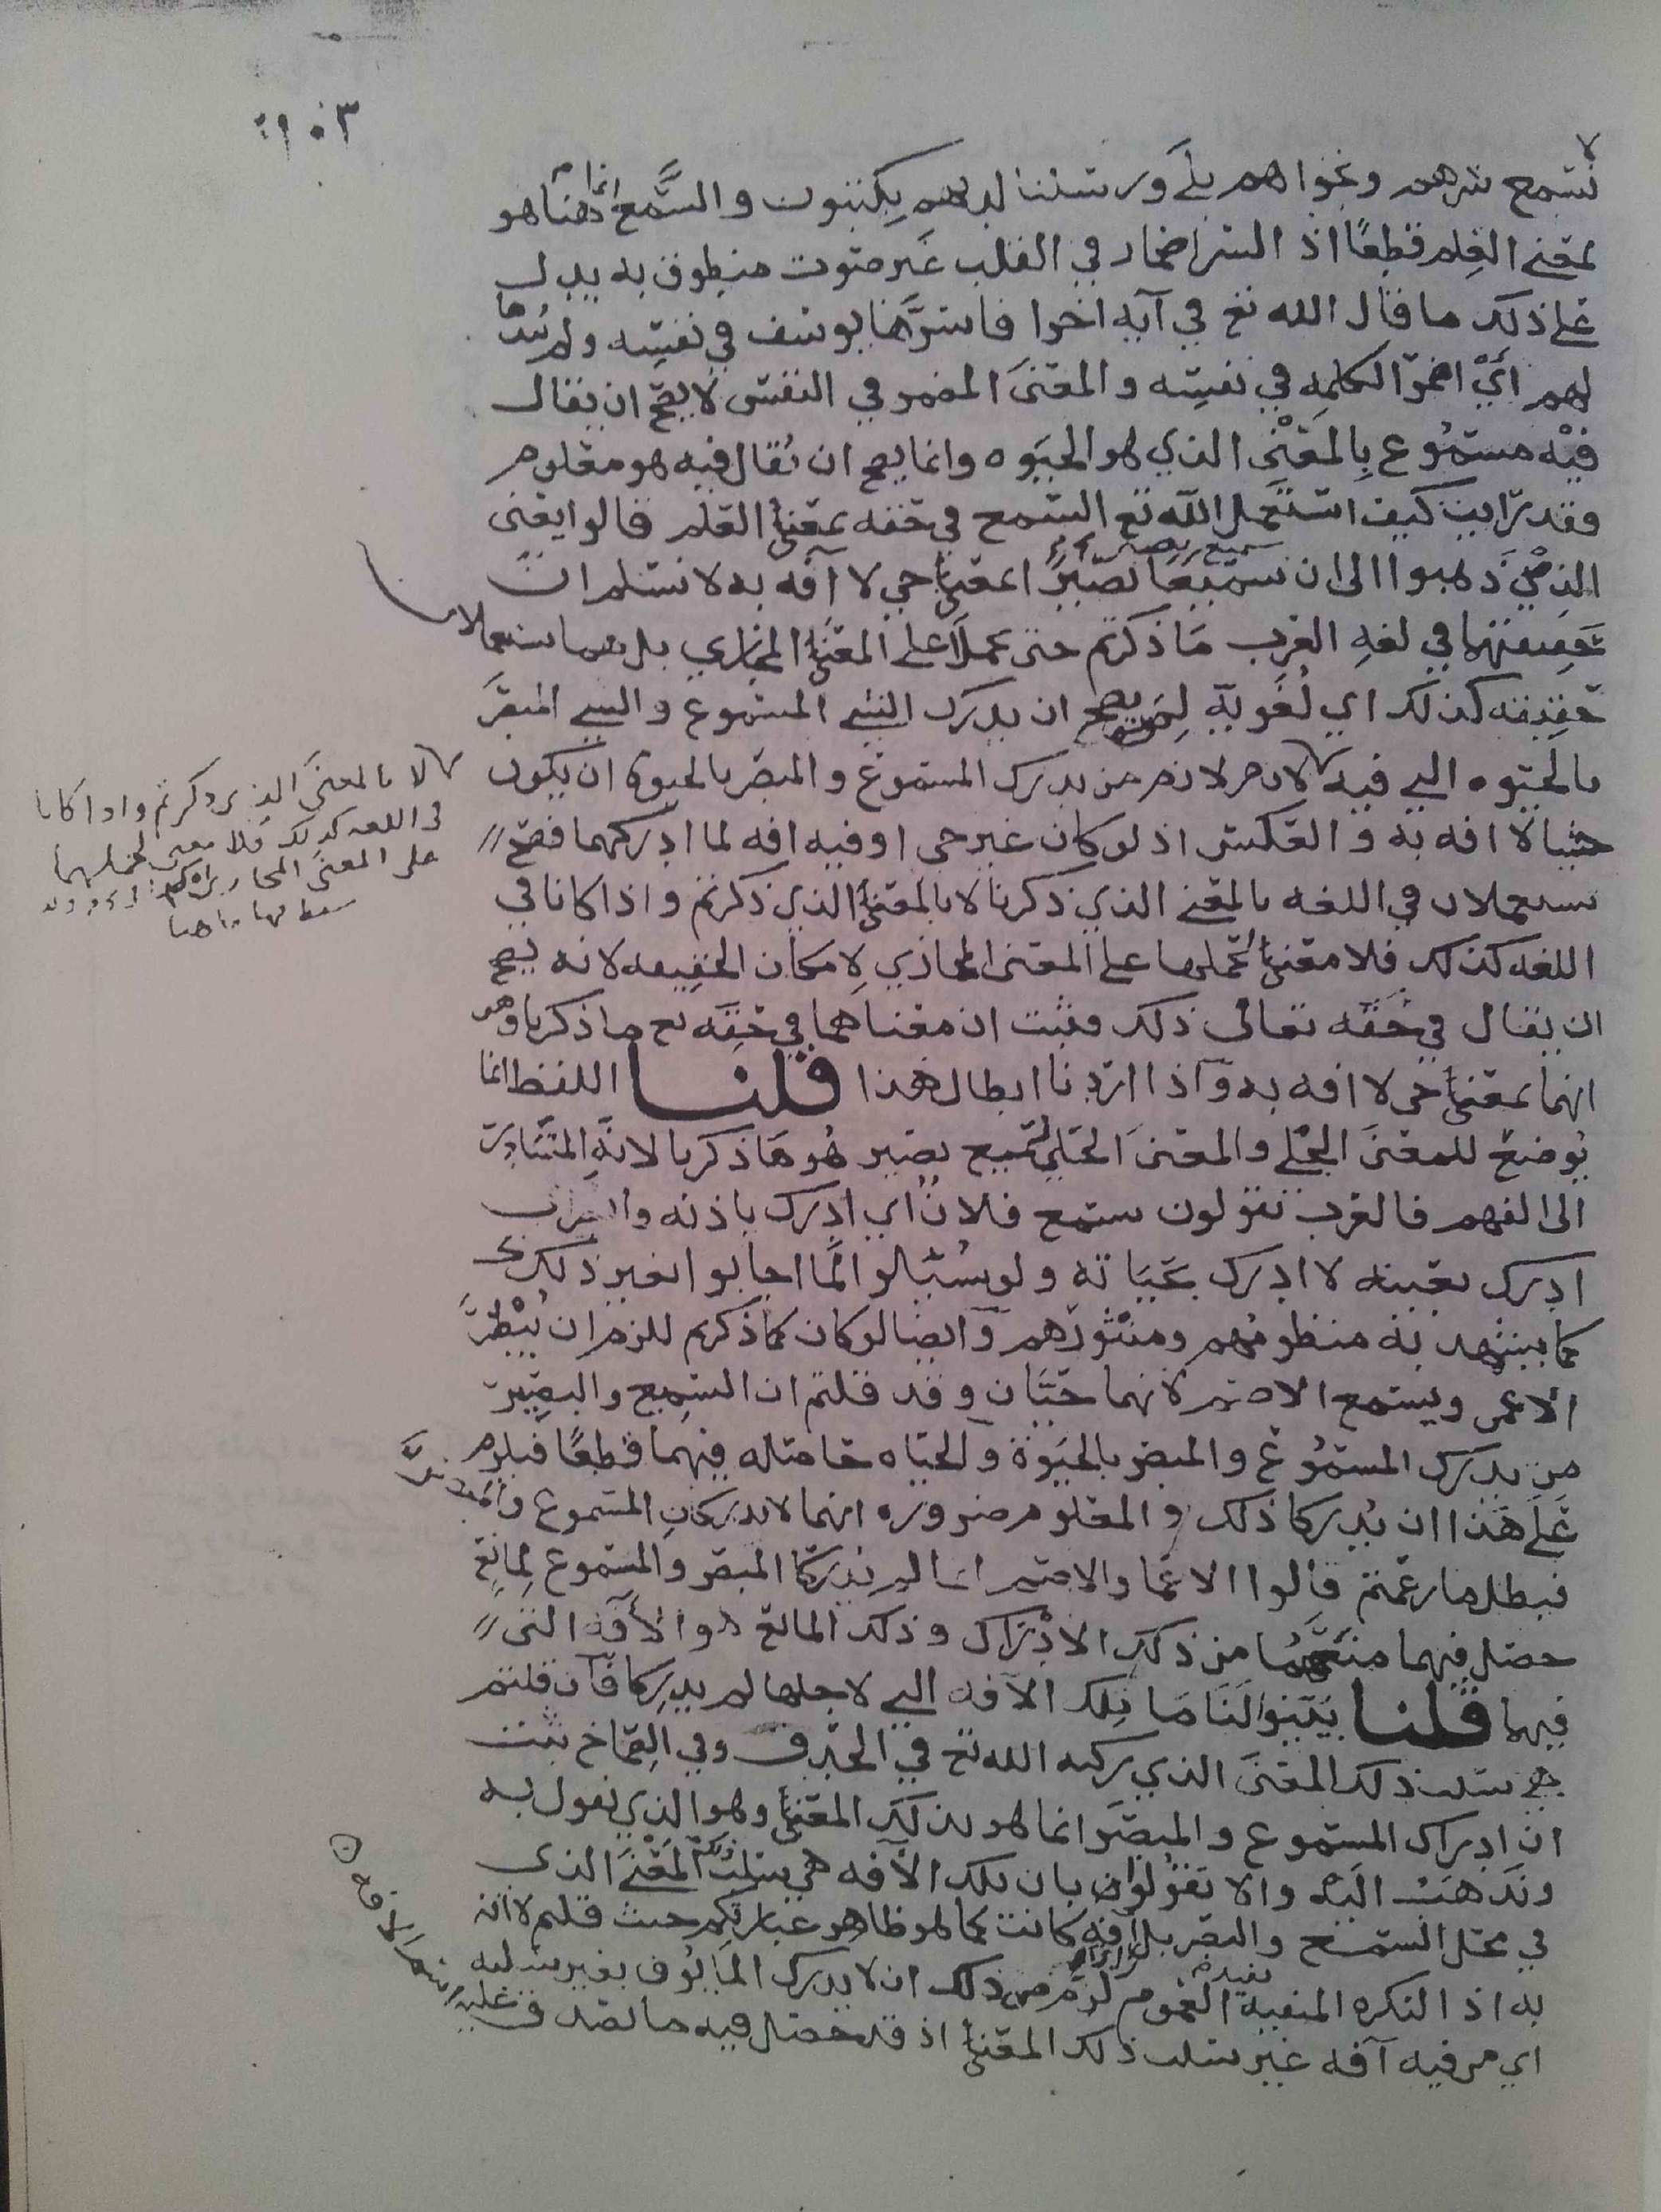 ١٠٣
لا
نسمع سرهم ونجواهم بلى ورسلنا لديهم يكتبون والسمع هنا انما هو
بمعنى العلم قطعًا اذ السر اضمار في القلب غير صوت منطوق به يدل
على ذلك ما قال الله تع في آية اخرا فاسرَّها يوسف في نفسه ولم يبدها
لهم أيْ اضمر الكلمه في نفسه والمعنىَ المضمر في النفس لا يصح ان يقال
فيْه مسمُوع بِالمَعْنى الذي هو الحيَوه وانما يصح ان يُقال فيه هو معلوم
وقد رايت كيف استعمل الله تع السمع في حقه بمعنى العلم قالوا يعني
الذين ذهبوا الى ان سميعًا بصيرًا بمعنى حي لا آفه به لا نسلم ان
حقيقتهما في لغهِ العرب مَا ذكرتم حتى يحملا على المعنى المجازي بل هما يستعملان
حقيقه كذلك اي لُغَويّه لِمن يصح ان يدرك الشي المسموع والشي المبصَر
بالحيَوه التي فيه لانه من يدرك المسموع والمبصَر بالحيوه ان يكون
حيًّا لا افه به والعكس اذ لو كان غير حي او فيه افه لما ادركهما فصح
يستعملان في اللغه بالمعنى الذي ذكرنا لا بالمعنى الذي ذكرتم واذا كانا في
اللغه كذلك فلا معنى لحملهما على المعنى المجازي لإمكان الحقيقه لانه يصح
ان يقال في حَقّه تعالى ذلك فثبت ان معناهما في حقِه تع ما ذكرنا وهو
انهما بمعنى حي لا افه به وآذا اردنا ابطال هذا قلنا اللفظ انما
يُوضعُ للمعنىَ الجلي والمعنىَ الجلي لسميع بصير هُو مَا ذكرنا لانَّه المتبَادِر
الى الفهم فالعرب تقولون سمع فلانٌ اي ادرك باذنه وابصر اي
ادرك بعينه لا ادرك بحَيَاته ولو سُئِلوا لَمَا اجابوا بغير ذلك
كما يشهد به منظومُهم ومنثورُهم وآيضا لو كان كما ذكرتم للزم ان يُبْصِرَ
الاعمى ويسمع الاصم لانهما حيَّان وقد قلتم ان السَّمِيع والبَصِير
من يدرك المسمُوع والمبصر بالحيَوة والحيَاه حاصله فيهما قطعًا فيلزم
عَلَى هَذا ان يُدركا ذلك والمعلوم ضروره انهما لا يدركانِ المسموع والمبصرَ
فبطل ما زعمتم قالوا الاعما والاصم انما لم يُدركا المبصر والمسموع لمانعٍ
حصل فيهما منعَهُمَا من ذلك الادْرَاك وذلك المانع هو الآفه التي
فيهما قلنا بَيِّنوا لَنَا مَا تِلك الآفه التي لاجلها لم يدركا فآن قلتم
هي سلب ذلك المعنىَ الذي ركبه الله تع في الحدَق وفي الصِمَاخ ثبت
ان ادراك المسموع والمبصَر انما هو بذلك المعنى وهو الذي نقول به
ونذهَبُ اليه والا تقولوا بان تلك الآفه هي سلب ذلك المَعْنَى الذي
في محل السَّمع والبصر بل اي آفهٍ كانت كما هو ظاهر عبارتكم حيث قلتم لا افه
به اذ النكره المنفيه تفيد العموم لزم من ذلك ان لا يدرك المأيُوف بغير سلبه
اي من فيه آفه غير سلب ذلك المعنى اذ قد حصل فيه ما يصدق عليه اسم الآفه
لا بالمعنىَ الذي ذكرتم واذا كانا
في اللغه كذلك فلا معنى لحملهما
على المعنىَ المجازي